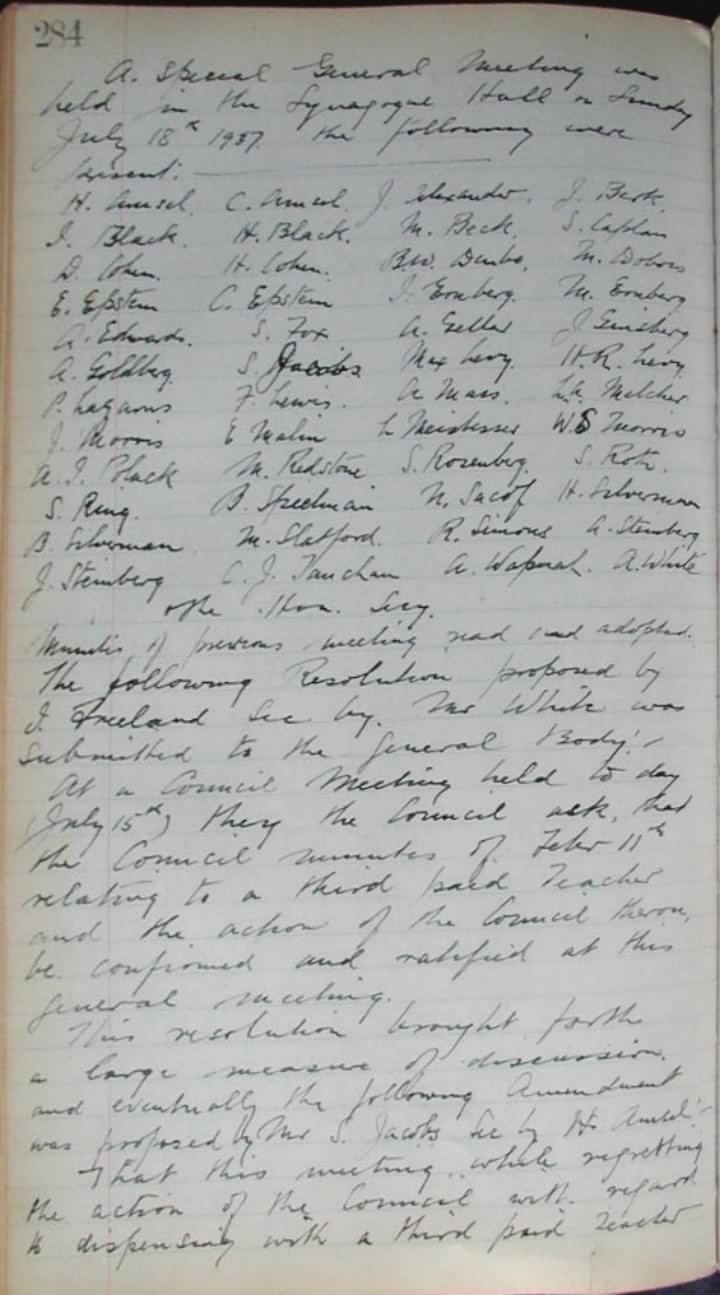 284
A. Special General Meeting was
held in the Synagogue Hall on Sunday
July 18th 1937 the following were
present:
H. Amsel. C. Amsel. J. Alexander. J. Berk.
I. Black. H. Black. M. Beck. S. Caplan
D. Cohen. H. Cohen. M.
E. Epstein C. Epstein I. Ernberg. M. Ernberg
A. Edwards. S. Fox A. Geller J Ginsberg
A. Goldberg. S. Jacobs Max Levy. H.R. Levy
P. Lazarus F. Lewis. A Mass. Melcher
J. Morris E Malin L W.S Morris
A. I. Polack M. Redstone. S. Rosenberg. S. Roth.
S. Ring. B. Speelman N. Sacof H. Silverman
B. Silverman M. Slatford. R. Simons A. Steinberg
J. Steinberg C. J. A. A. White
& the Hon. Secy.
Minutes of previous meeting read and adopted.
The following Resolution proposed by
I. Freeland Sec by. Mr White was
submitted to the General Body:-
At a Council Meeting held to day
(July 15th) they the Council ask, that
the Council minutes of Febr 11th
relating to a third paid Teacher
and the action of the Council theron,
be confirmed and ratified at this
general meeting.
This resolution brought forth
a large measure of discussion.
and eventually the following Amendment
was proposed by Mr S. Jacobs Sec by H. Amsel:-
That this meeting while regretting
the action of the Council with regard
to dispensing with a third paid Teacher